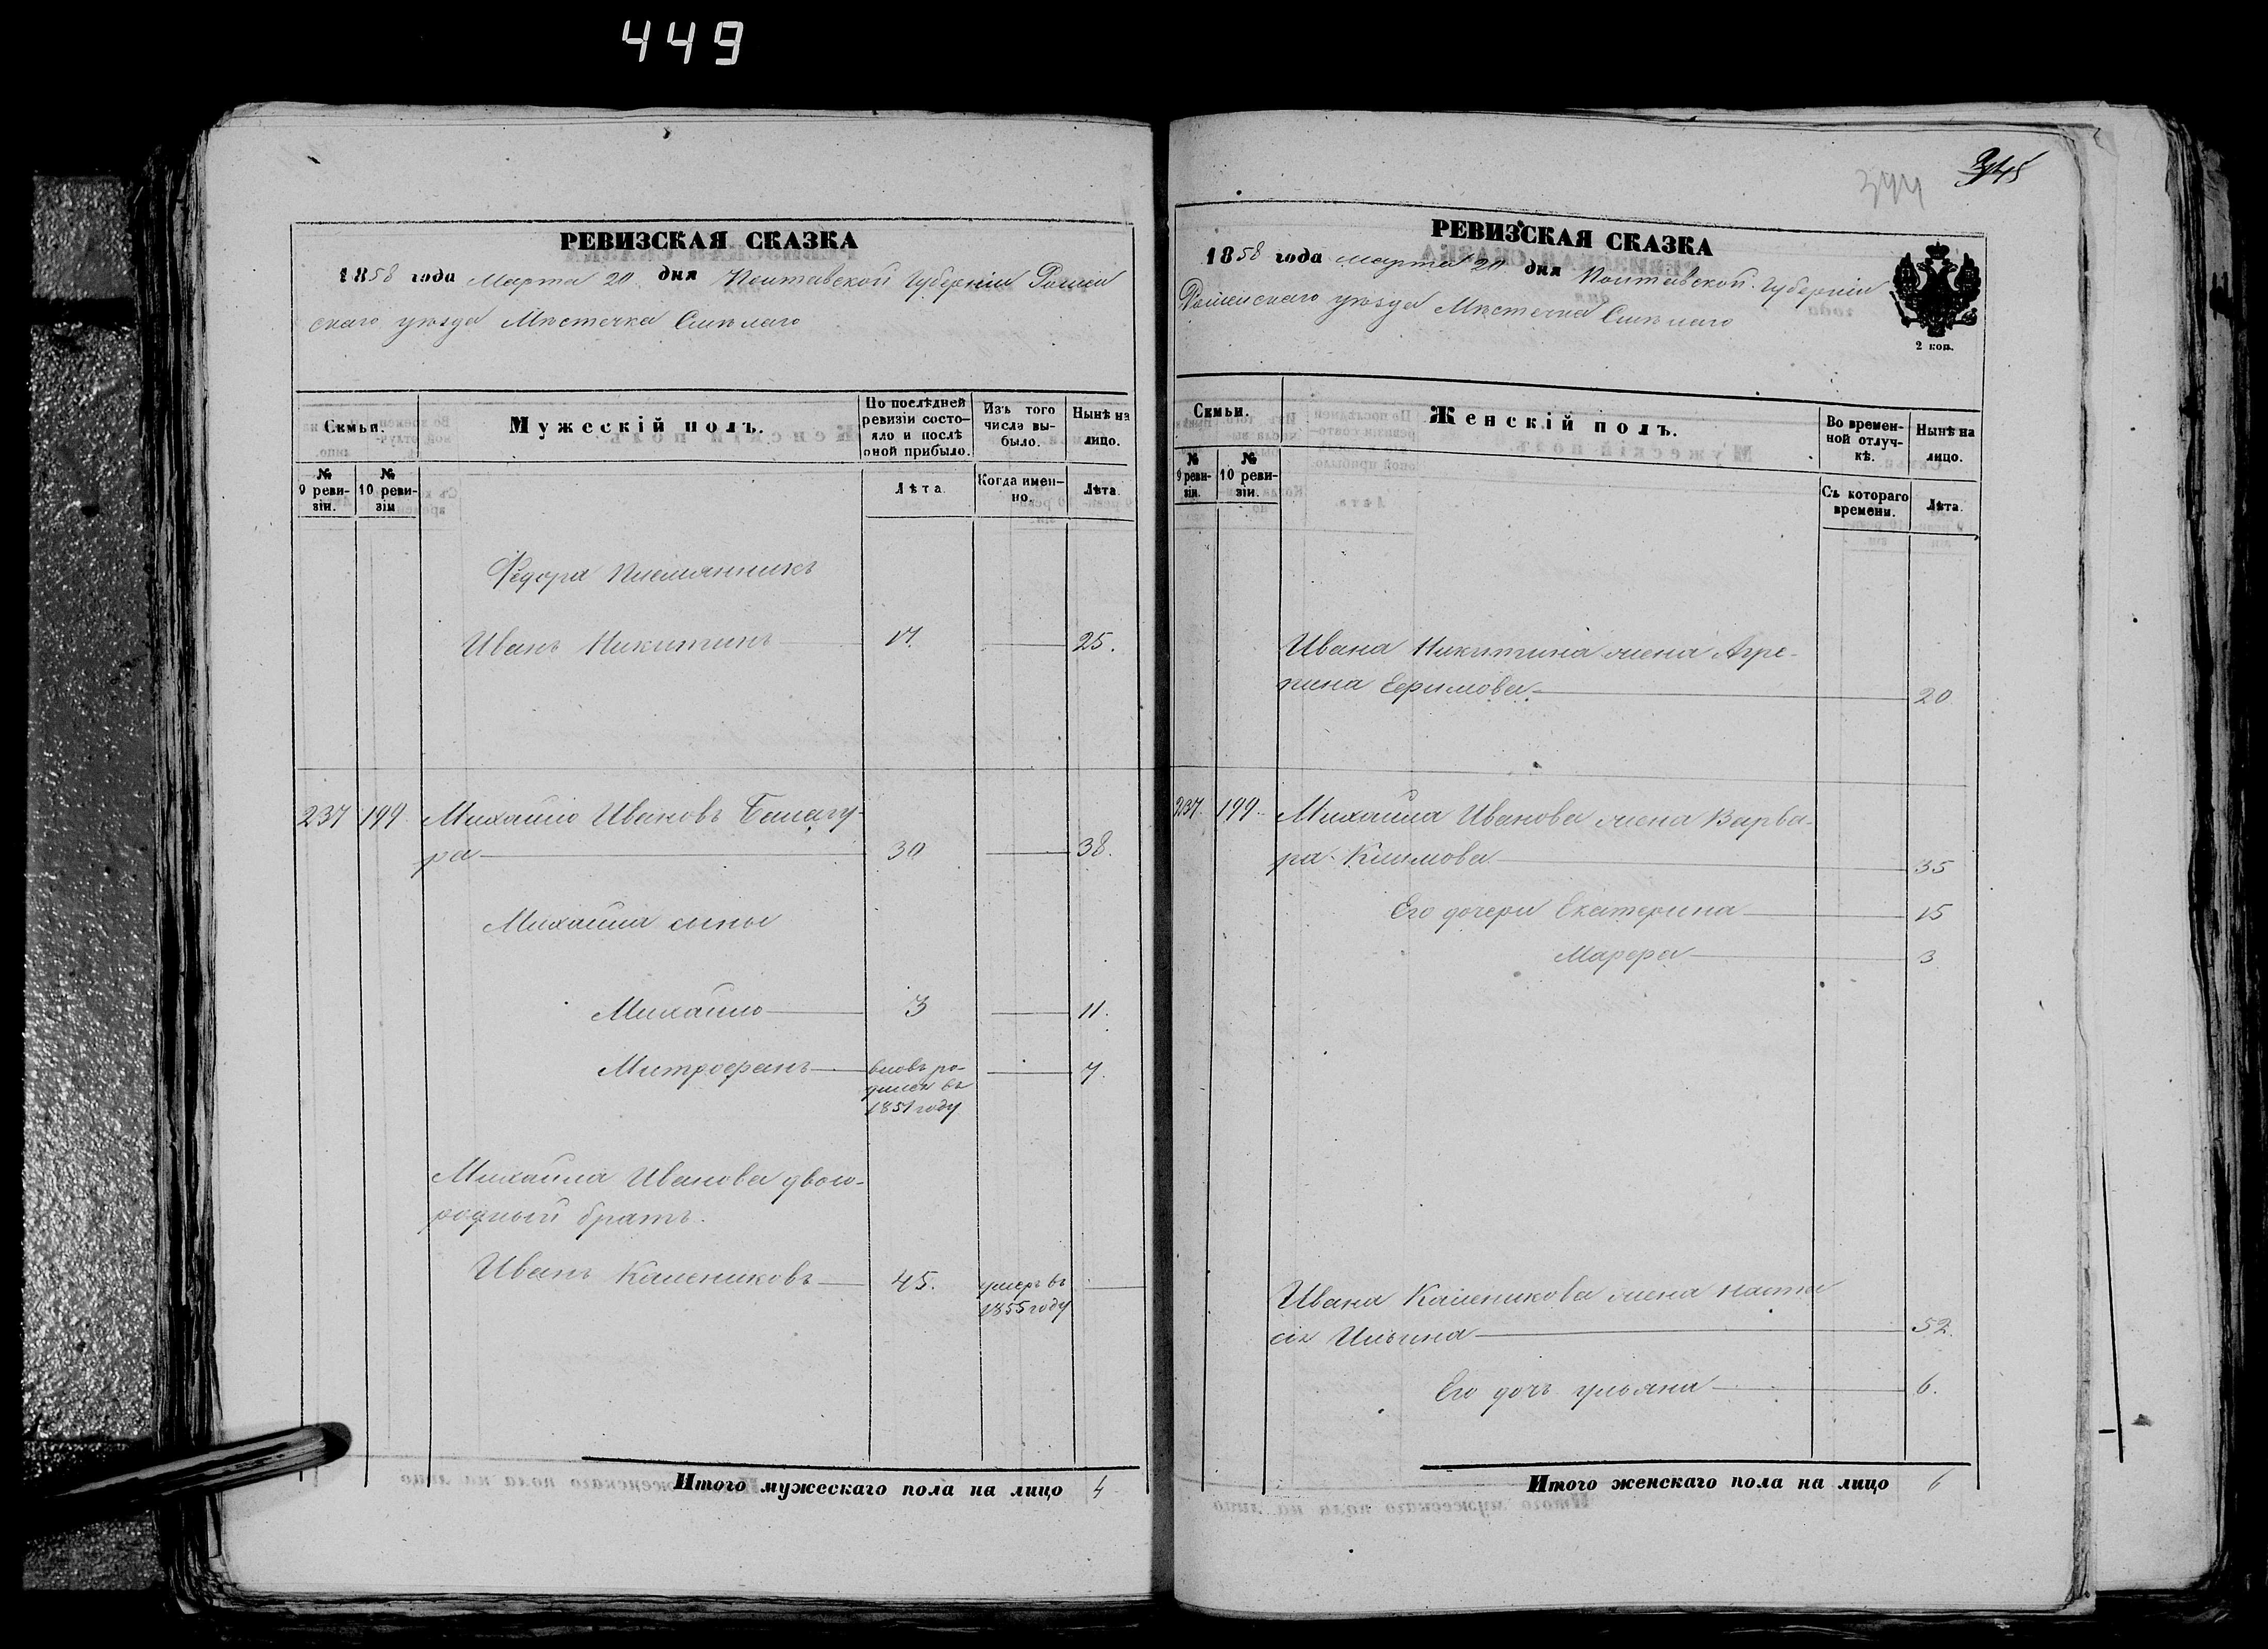 449
РЕВИЗСКАЯ СКАЗКА
1858 года Марта 20 дня Полтавской Губерніи Ромен
скаго уѣзда Мѣстечка Смѣлаго
Семьи.
Мужескій полъ.
По послѣдней ревизіи состояло и послѣ оной прибыло.
Изъ того числа выбыло.
Нынѣ на лицо.
№ 9 ревизіи.
№ 10 ревизіи
Лѣта
Когда именно.
Лѣта.
Федора племянникъ
Иванъ Никитинъ 17. 25.
237 199 Михайло Ивановъ Балагу-
ра 30 38.
Михайла сыны
Михайло 3 11.
Митрофанъ вновь ро- 7.
дился въ
1851 году
Михайла Иванова двою-
родный братъ.
Иванъ Калениковъ 45. умеръ въ
1855 году
Итого мужескаго пола на лицо 4
344
345
РЕВИЗСКАЯ СКАЗКА
1858 года марта 20 дня Полтавской Губерніи
Роменскаго уѣзда Мѣстечка Смѣлаго
2 коп.
Семьи.
Женскій полъ.
Во временной отлучкѣ.
Нынѣ на лицо.
№ 9 ревизіи.
№ 10 ревизіи.
Съ котораго времени.
Лѣта.
Ивана Никитина жена Агре-
пина Ефимова 20
237. 199. Михайла Иванова жена Варва-
ра Климова 35
Его дочери Екатерина 15
Марфа 3
Ивана Каленикова жена Наста
сія Ильина 52.
Его дочь Ульяна 6.
Итого женскаго пола на лицо 6